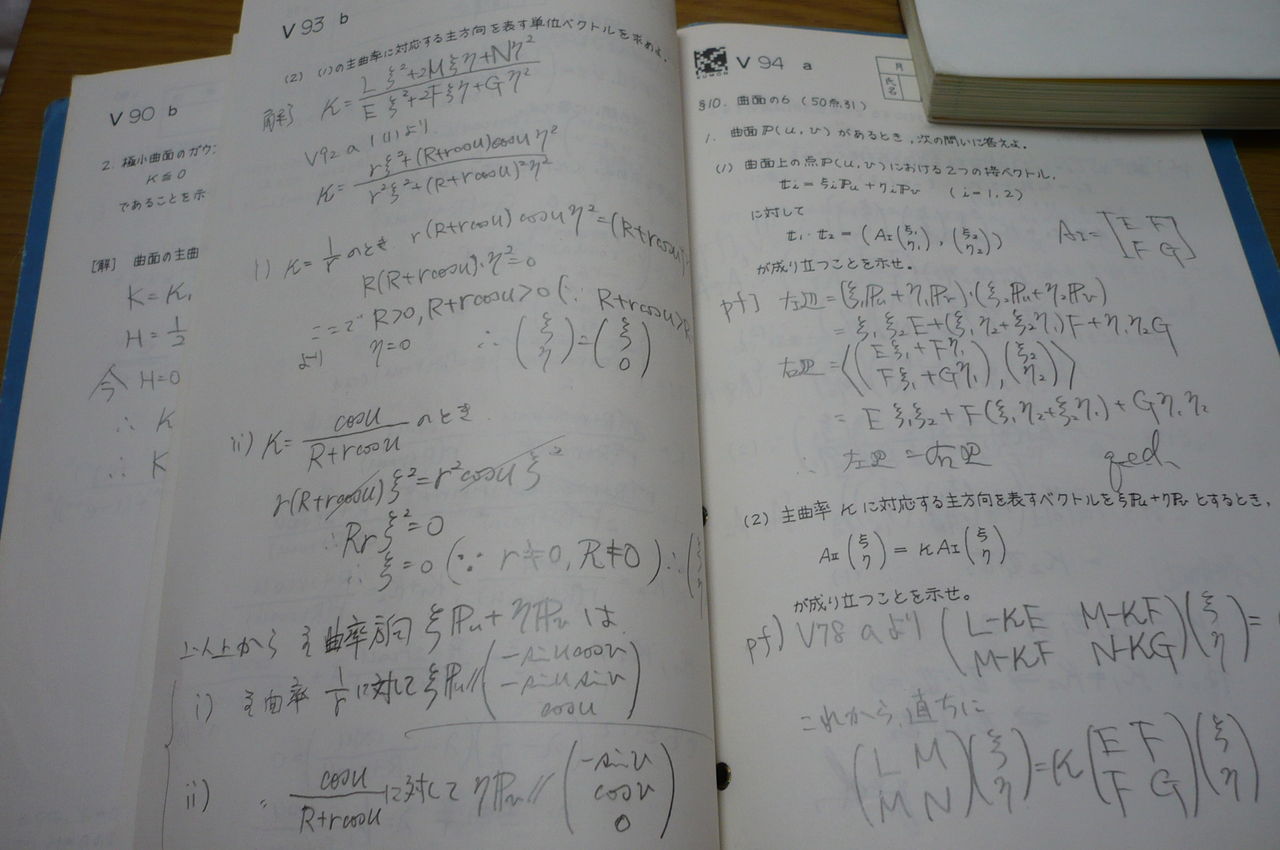 V 90 b
2. 極小曲面のガウ
K ≦ 0
であることを示
[解] 曲面の主曲
K = K₁
H = 1/2
今 H=0
∴ K
∴ K
V 93 b
(2) (1)の主曲率に対応する主方向を表す単位ベクトルを求めよ.
解] κ = (Lξ²+2Mξη+Nη²)/(Eξ²+2Fξη+Gη²)
V92 a 1(1)より
κ = (rξ²+(R+rcosu)cosuη²)/(r²ξ²+(R+rcosu)²η²)
i) κ = 1/r のとき. r(R+rcosu)cosuη²=(R+rcosu)
R(R+rcosu)・η²=0
ここで R>0, R+rcosu>0 (∵ R+rcosu>R
より η=0 ∴ (ξ η)=(ξ 0)
ii) κ = cosu/(R+rcosu) のとき
r(R+rcosu)ξ²=r²cosuξ²
∴ Rrξ²=0
∴ ξ=0 (∵ r≠0, R≠0) ∴
以上から 主曲率方向 ξℙu+ηℙv は
i) 主曲率 1/r に対して ξℙu // (-sinucosv -sinusinv cosu)
ii) 〃 cosu/(R+rcosu) に対して ηℙv // (-sinv cosv 0)
KUMON V 94 a
月
氏名
§10. 曲面の6 (50点.31)
1. 曲面 ℙ(u,v) があるとき, 次の問いに答えよ.
(1) 曲面上の点ℙ(u,v)における2つの接ベクトル.
𝕥i = ξiℙu + ηiℙv (i=1,2)
に対して
𝕥₁・𝕥₂ = (AI(ξ₁ η₁), (ξ₂ η₂)) AI=[E F F G]
が成り立つことを示せ。
pf] 左辺 = (ξ₁ℙu+η₁ℙv)・(ξ₂ℙu+η₂ℙv)
= ξ₁ξ₂E+(ξ₁η₂+ξ₂η₁)F+η₁η₂G
右辺 = 〈(Eξ₁+Fη₁ Fξ₁+Gη₁), (ξ₂ η₂)〉
= Eξ₁ξ₂+F(ξ₁η₂+ξ₂η₁)+Gη₁η₂
∴ 左辺 = 右辺 qed
(2) 主曲率 κ に対応する主方向を表すベクトルをξℙu+ηℙv とするとき,
AII(ξ η) = κAI(ξ η)
が成り立つことを示せ。
pf) V78 a より (L-κE M-κF M-κF N-κG)(ξ η) =
これから, 直ちに
(L M M N)(ξ η)=κ(E F F G)(ξ η)